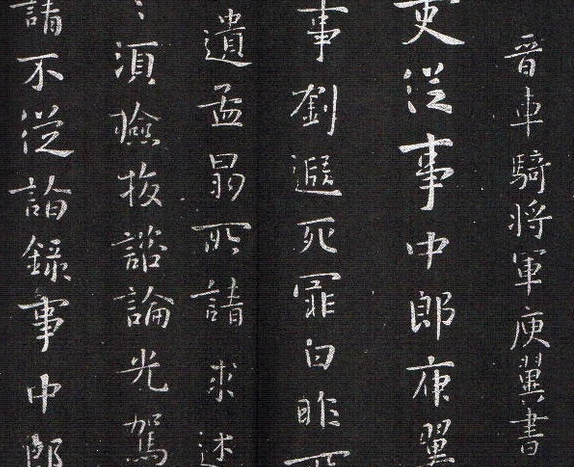 晉車騎将軍庾翼書
吏從事中郎庾翼
事劉遐死罪白昨所
遺孟所請求述
須論光駕
請不從録事中郎